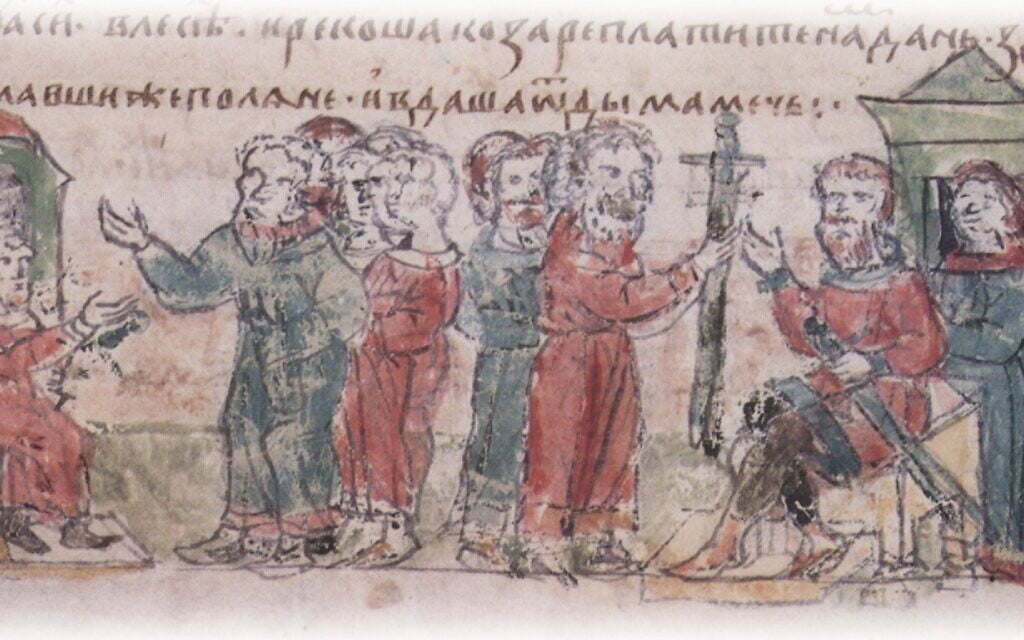 аси · в лесѣ · и рекоша козаре платите на дань ·
мавши же поляне · и вдаша ѿ дыма мечь : ·